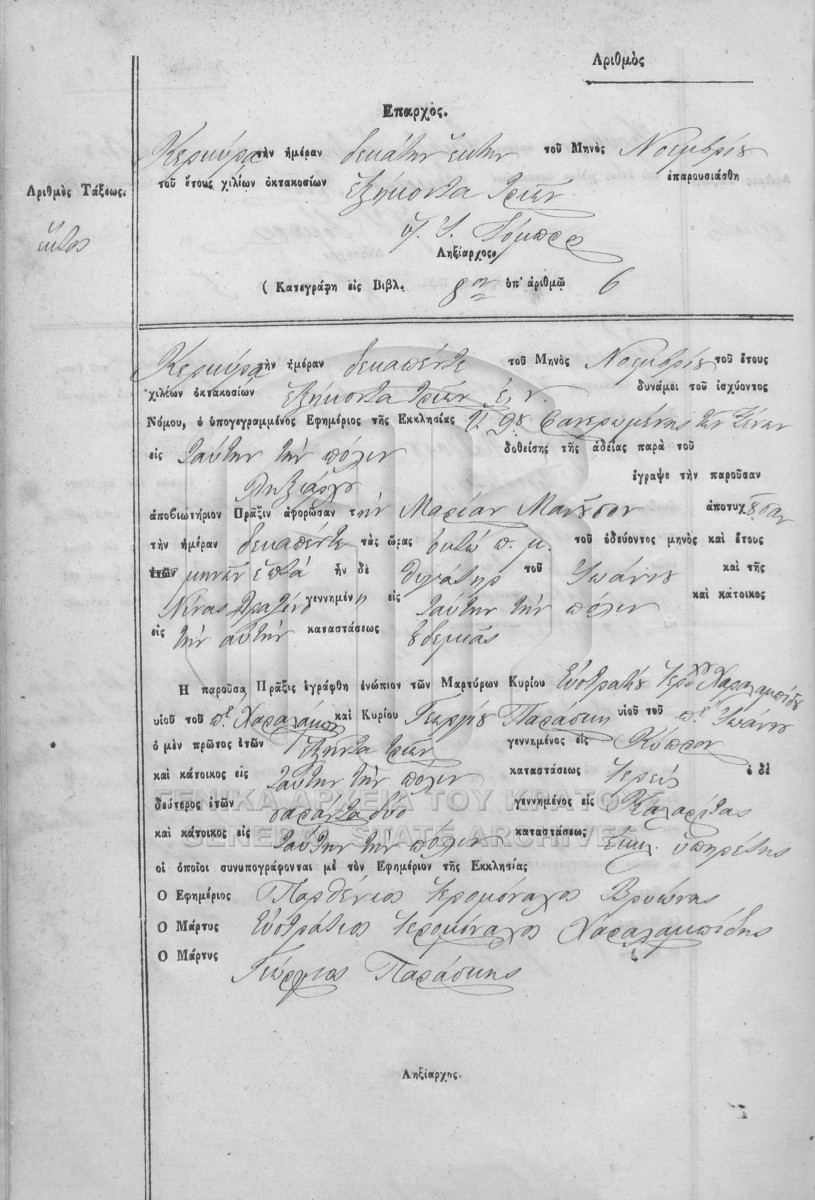 Αριθμὸς
Επαρχος.
Κερκύρα τὴν ἡμέραν δεκάτην ἕκτην τοῦ Μηνὸς Νοεμβρίου
Αριθμὸς Τάξεως.
ἕκτος
τοῦ ἔτους χιλίων ὀκτακοσίων ἑξήκοντα τριῶν ἐπαρουσιάσθη
Ληξίαρχος
( Κατεγράφη εἰς Βιβλ. 8ον ὑπ' ἀριθμῷ 6
Κερκύρα τὴν ἡμέραν δεκαπέντε τοῦ Μηνὸς Νοεμβρίου τοῦ ἔτους
χιλίων ὀκτακοσίων ἑξήκοντα τριῶν ἔ. ν. δυνάμει τοῦ ἰσχύοντος
Νόμου, ὁ ὑπογεγραμμένος Εφημέριος τῆς Εκκλησίας Φανερωμένης τῶν Ξένων
εἰς ταύτην τὴν πόλιν δοθείσης τῆς ἀδείας παρὰ τοῦ
Ληξιάρχου ἔγραψε τὴν παροῦσαν
ἀποβιωτήριον Πρᾶξιν ἀφορῶσαν τὴν Μαρίαν ἀποτυχοῦσαν
τὴν ἡμέραν δεκαπέντε τὰς ὥρας ὀκτὼ π. μ. τοῦ ὁδεύοντος μηνὸς καὶ ἔτους
ἐτῶν μηνῶν ἑπτὰ ἦν δὲ θυγάτηρ τοῦ Ἰωάννου καὶ τῆς
Νίνας γεννημένη εἰς ταύτην τὴν πόλιν καὶ κάτοικος
εἰς τὴν αὐτὴν καταστάσεως οὐδεμιᾶς
Η παροῦσα Πρᾶξις ἐγράφθη ἐνώπιον τῶν Μαρτύρων Κυρίου Εὐστρατίου Ἱερομχου Χαραλαμπίδου
υἱοῦ τοῦ πε Χαραλάμπη καὶ Κυρίου Γεωργίου Παράσκη υἱοῦ τοῦ πε Ἰωάννου
ὁ μὲν πρῶτος ἐτῶν ἑξῆντα τριῶν γεννημένος εἰς Κύπρον
καὶ κάτοικος εἰς ταύτην τὴν πόλιν καταστάσεως Ἱερεὺς ὁ δὲ
δεύτερος ἐτῶν σαραντα δύο γεννημένος εἰς Καλαρίτας
καὶ κάτοικος εἰς ταύτην τὴν πόλιν καταστάσεως Ἐκκλ. ὑπηρέτης
οἱ ὁποῖοι συνυπογράφονται μὲ τὸν Εφημέριον τῆς Εκκλησίας
Ο Εφημέριος Παρθένιος Ἱερομόναχος Βρυώνης
Ο Μάρτυς Εὐστράτιος Ἱερομόναχος Χαραλαμπίδης
Ο Μάρτυς
Γεώργιος Παράσκης
Ληξίαρχος.
ΓΕΝΙΚΑ ΑΡΧΕΙΑ ΤΟΥ ΚΡΑΤΟΥΣ
GENERAL STATE ARCHIVES